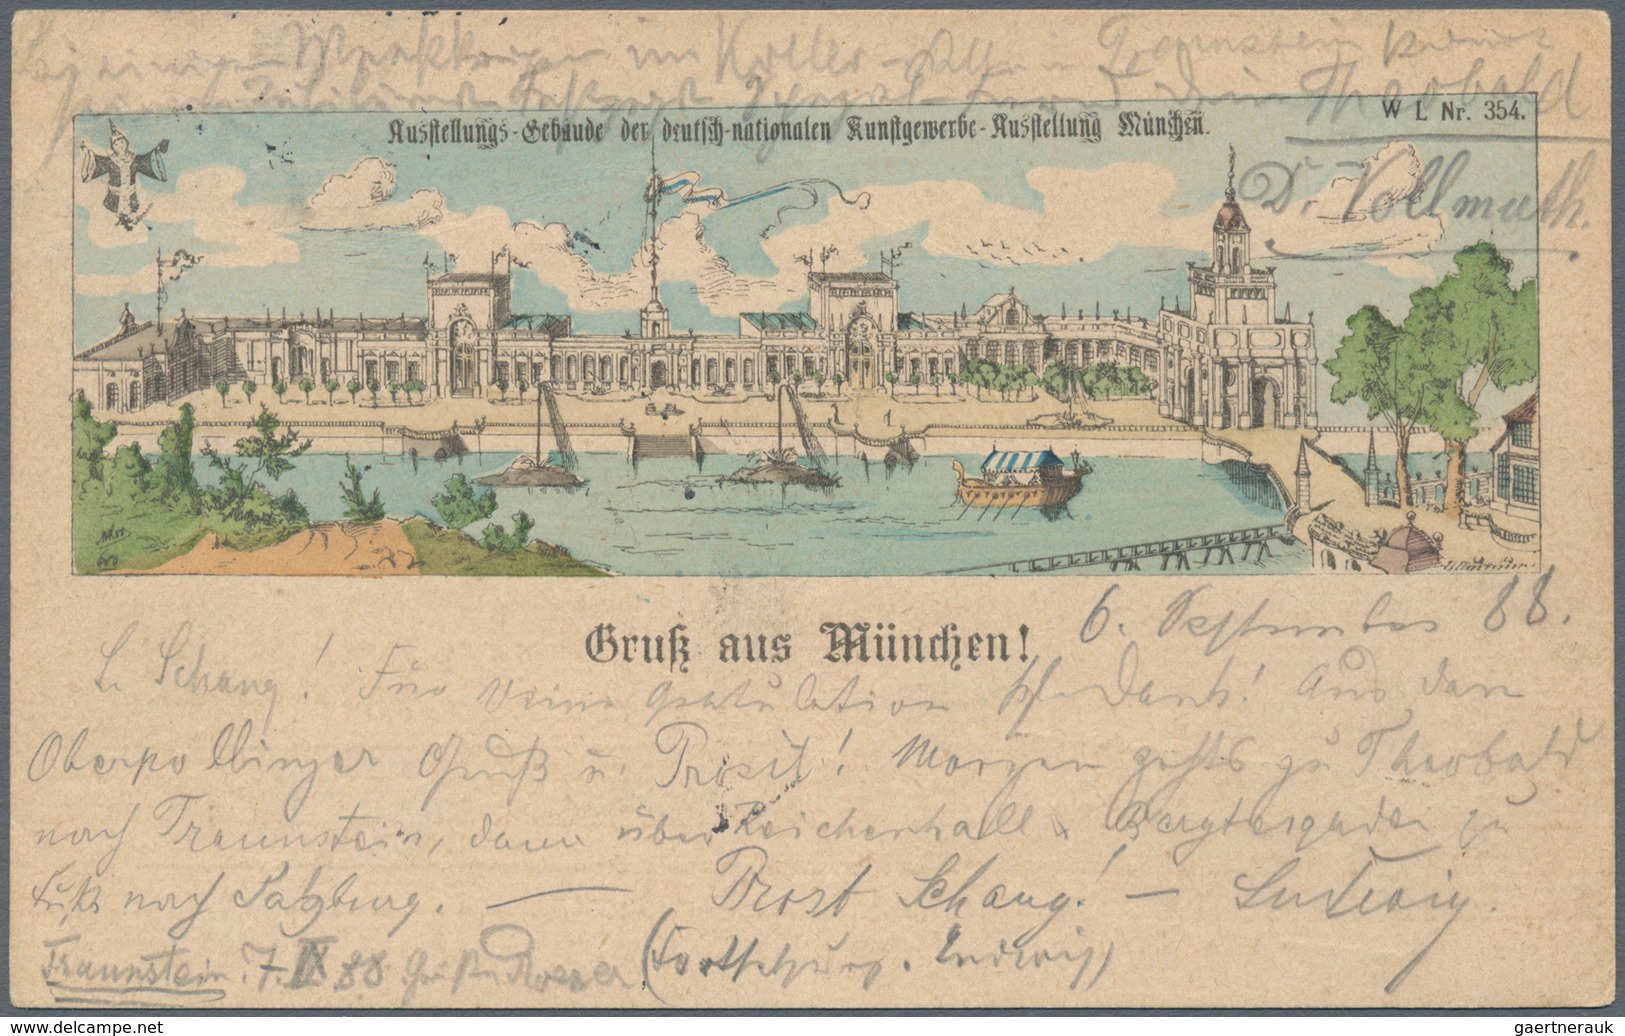 im Keller Traunstein
Theobald
W L Nr. 354.
Ausstellungs-Gebäude der deutsch-nationalen Kunstgewerbe-Ausstellung München.
Dr Vollmuth.
Gruß aus München!
6. September 88.
L. Schang! Für Deine Gratulation Dank! Aus dem
Oberpollinger Gruß u. Prosit! Morgen gehts zu Theobald
nach Traunstein, dann über Reichenhall Bergtesgaden zu
Fuß nach Salzburg. — Prost Schang! – Ludwig.
Traunstein. 7. IX 88 (Fortsetzung. Ludwig)
© www.delcampe.net
gaertnerauk